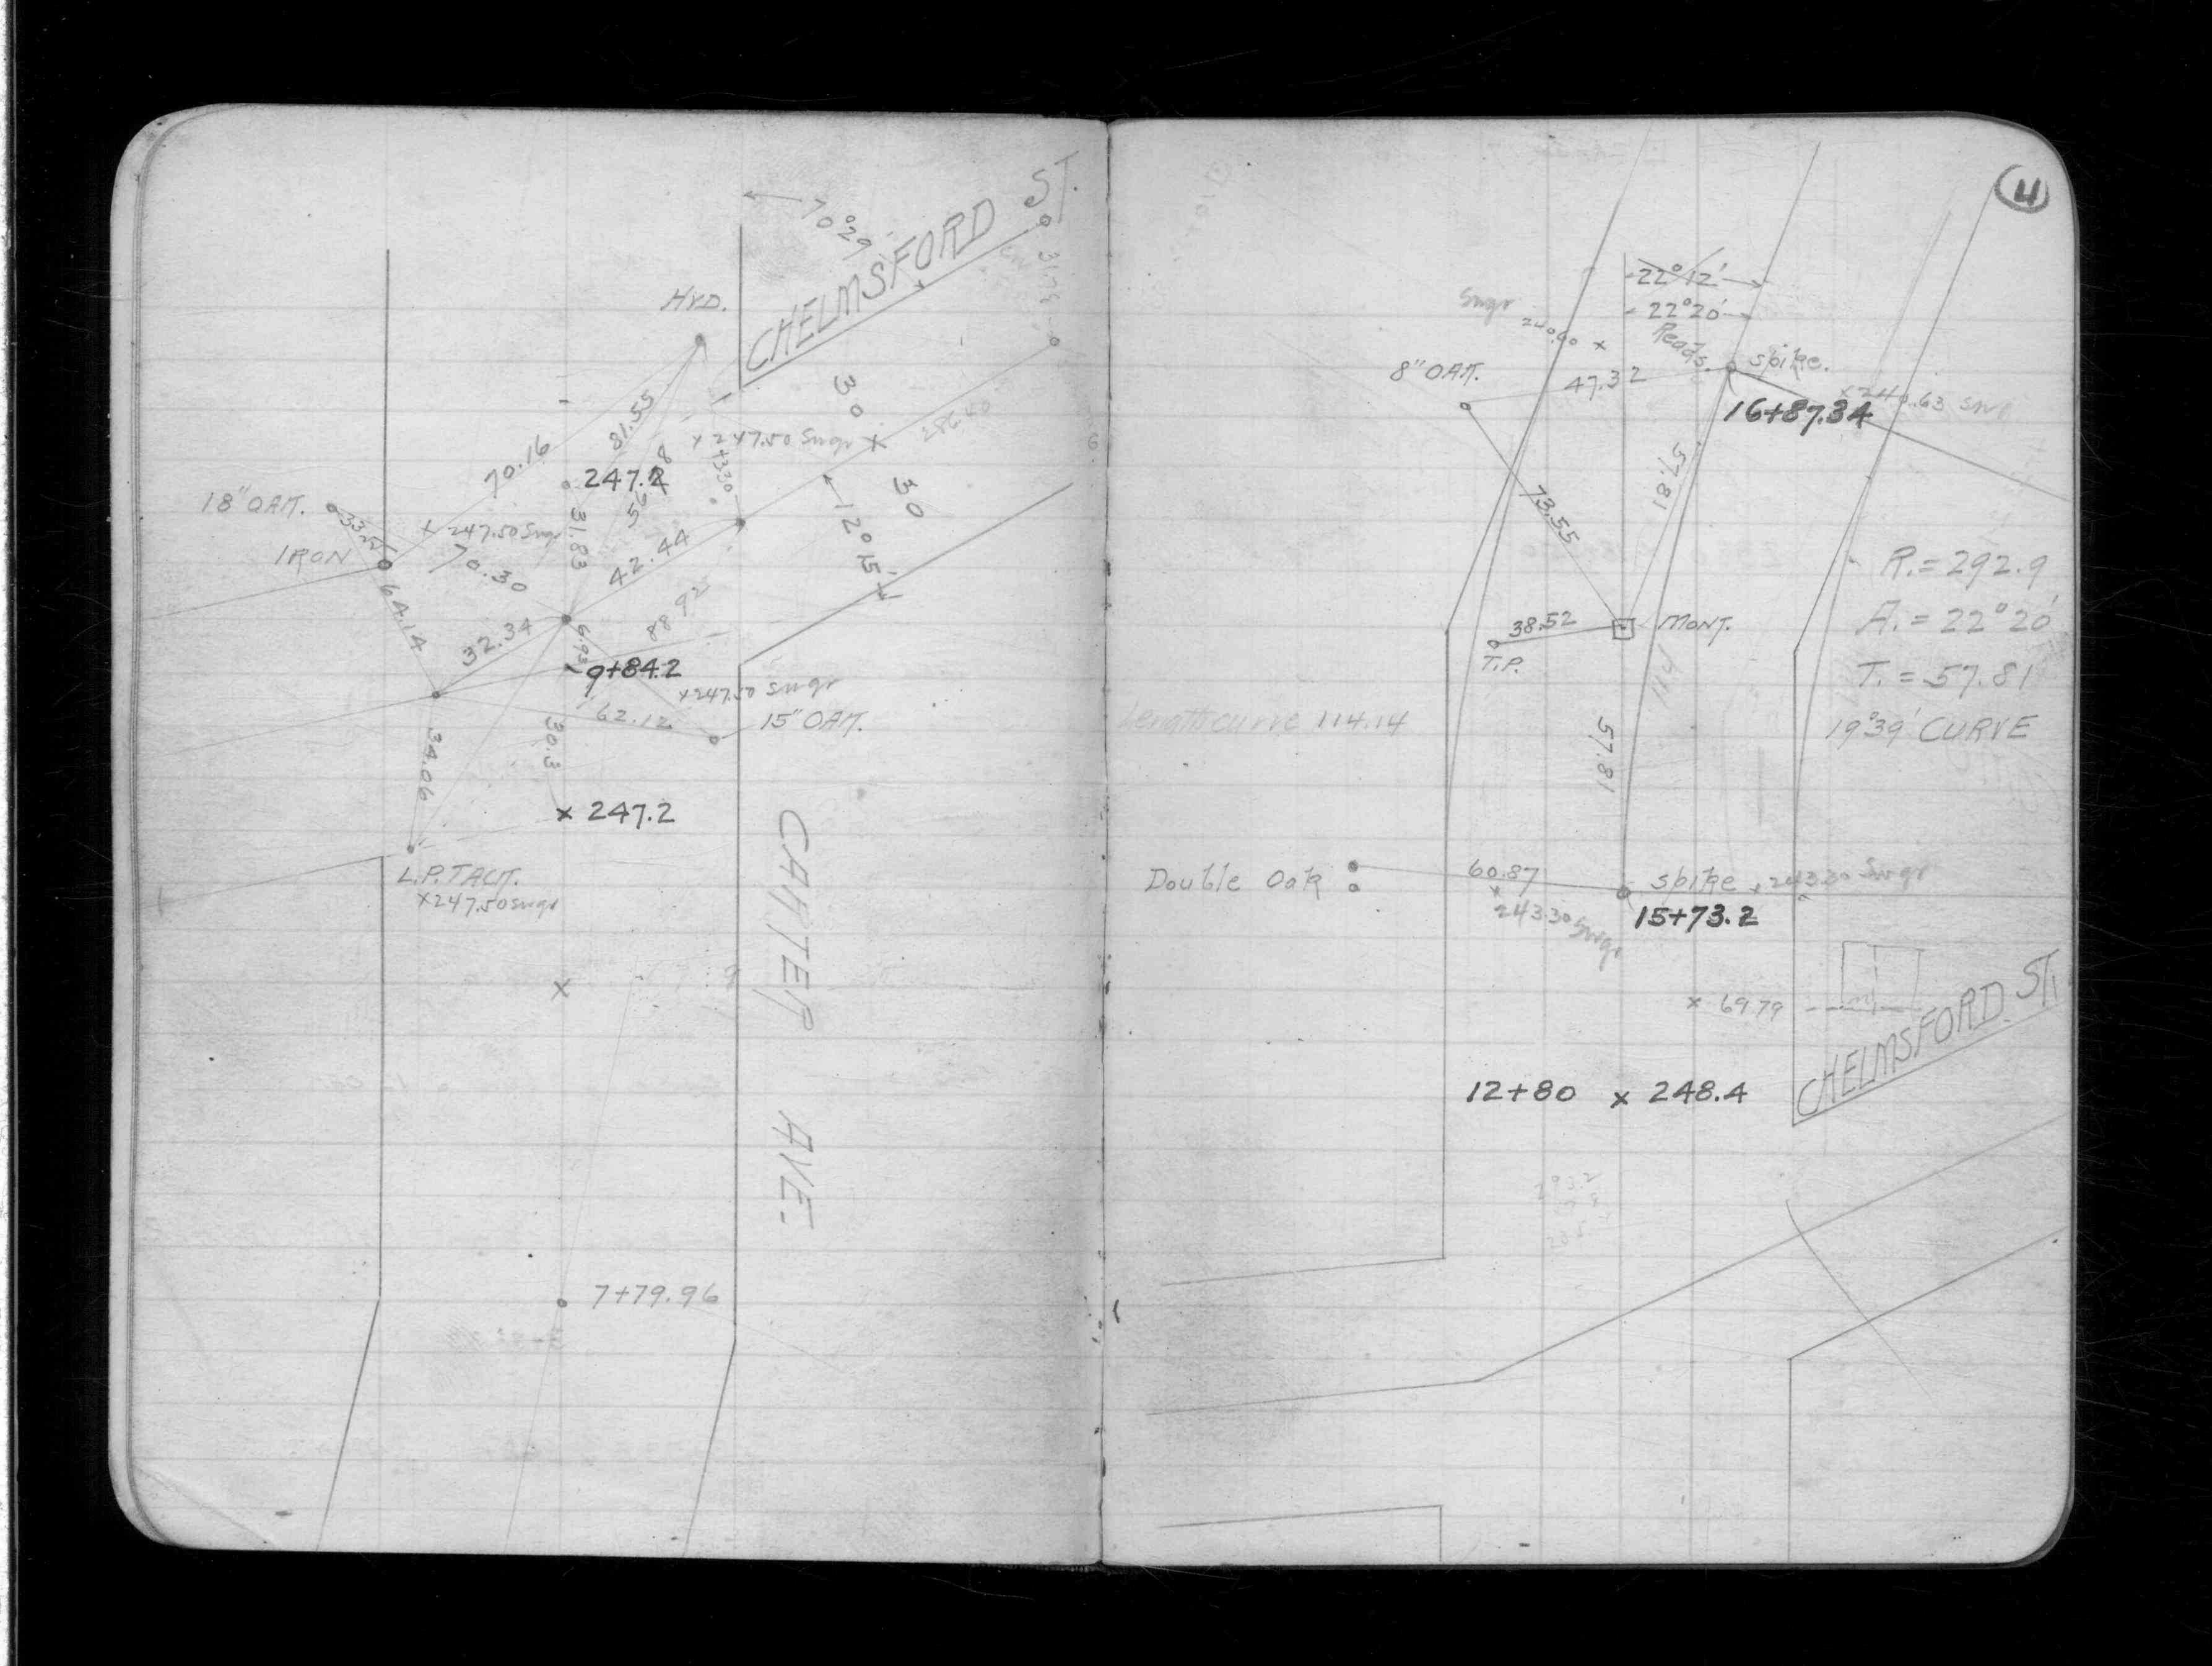 70°29'
CHELMSFORD ST.
HYD.
30
81.55
x 247.50 Swgr
286.40
70.16
247.2
30
18" OAK.
33.21
x 247.50 Swgr
31.83
12°15'
IRON
70.30
42.44
64.14
88.92
32.34
6.93
9+84.2
x 247.50 Swgr
62.12
15" OAK.
34.06
30.3
x 247.2
L.P. TACK.
x 247.50 Swgr
CARTER AVE.
x
7+79.96
4
22°12'
22°20'
Swgr
240.60 x
Reads.
spike.
8" OAK.
47.32
x 240.63
16+87.34
57.81
73.55
R. = 292.9
A. = 22°20'
38.52
MONT.
T.P.
T. = 57.81
114
Length curve 114.14
19°39' CURVE
57.81
Double Oak
60.87
spike
x 243.30 Swgr
x
243.30 Swgr
15+73.2
x 69.79
CHELMSFORD ST.
12+80 x 248.4